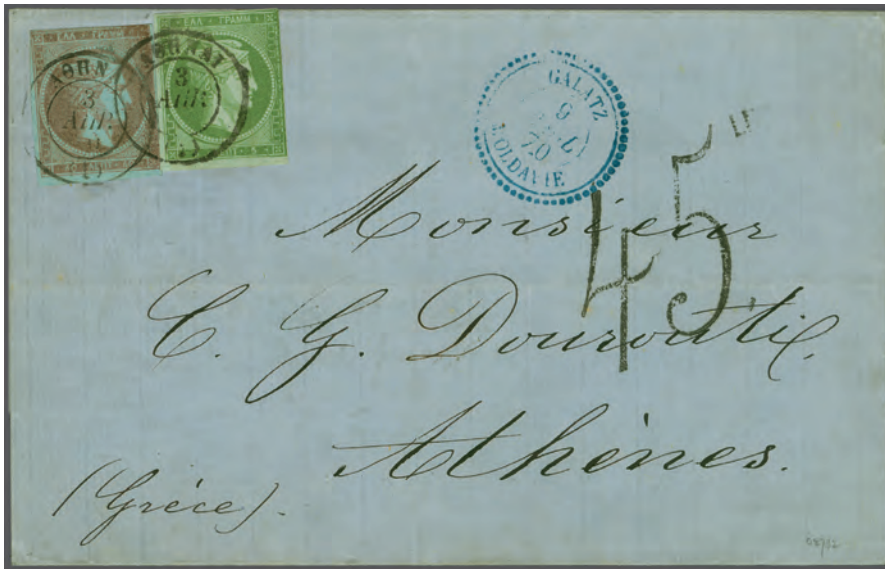 ΕΛΛ ΓΡΑΜΜ
ΕΛΛ ΓΡΑΜΜ
ΑΘΗΝΑΙ
3
ΑΠΡ
GALATZ
9
70
MOLDAVIE
45
Monsieur
C. G. Dourouti
Athènes.
(Grèce).